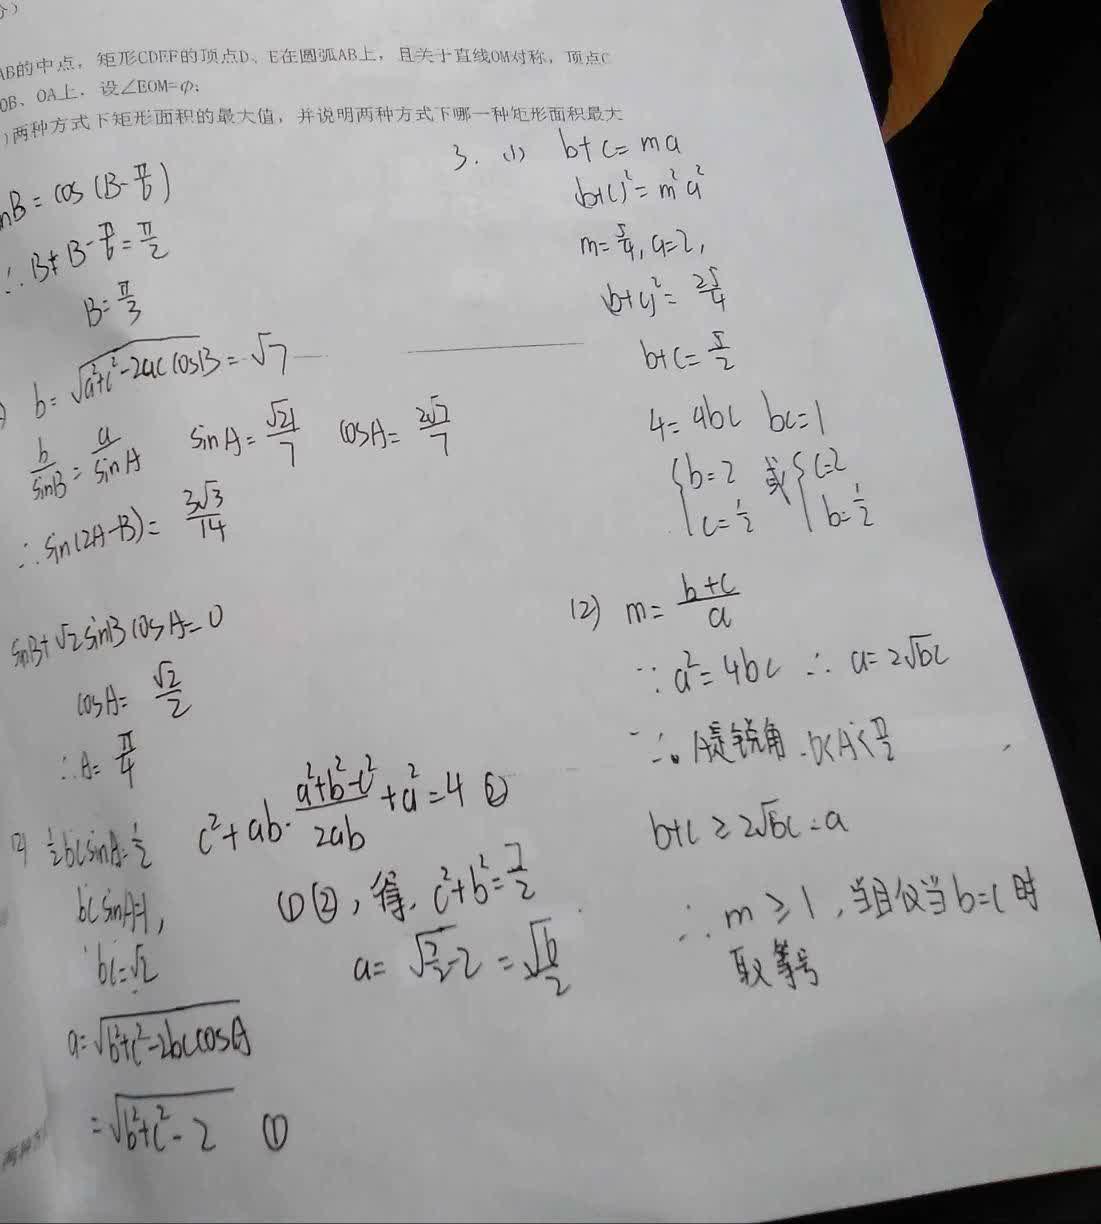 AB的中点，矩形CDEF的顶点D、E在圆弧AB上，且关于直线OM对称，顶点C
OB、OA上，设∠EOM=φ；
)两种方式下矩形面积的最大值，并说明两种方式下哪一种矩形面积最大
nB = cos (B-π/6)
B-π/6=π/2
B=π/3
b= √(a²+c²-2ac cosB) = √7
b/sinB = a/sinA sinA= √21/7 cosA= 2√7/7
∴ sin(2A-B)= 3√3/14
sinB+√2sinBcosA=0
cosA= √2/2
∴A= π/4
½bcsinA=½
bcsinA=1,
bc=√2
a=√(b²+c²-2bccosA)
=√(b²+c²-2) ①
c²+ab·(a²+b²-c²)/2ab+a²=4 ②
①②, 得, c²+b²=7/2
a= √(7/2-2) = √6/2
3. (1) b+c= ma
(b+c)²= m²a²
m=5/4, a=2,
(b+c)²= 25/4
b+c= 5/2
4=4bc bc=1
{b=2 或 {c=2
c=½ b=½
(2) m= (b+c)/a
∵ a²=4bc ∴ a=2√bc
∵ A是锐角 0<A<π/2
b+c ≥ 2√bc = a
∴ m ≥ 1, 当且仅当b=c时
取等号